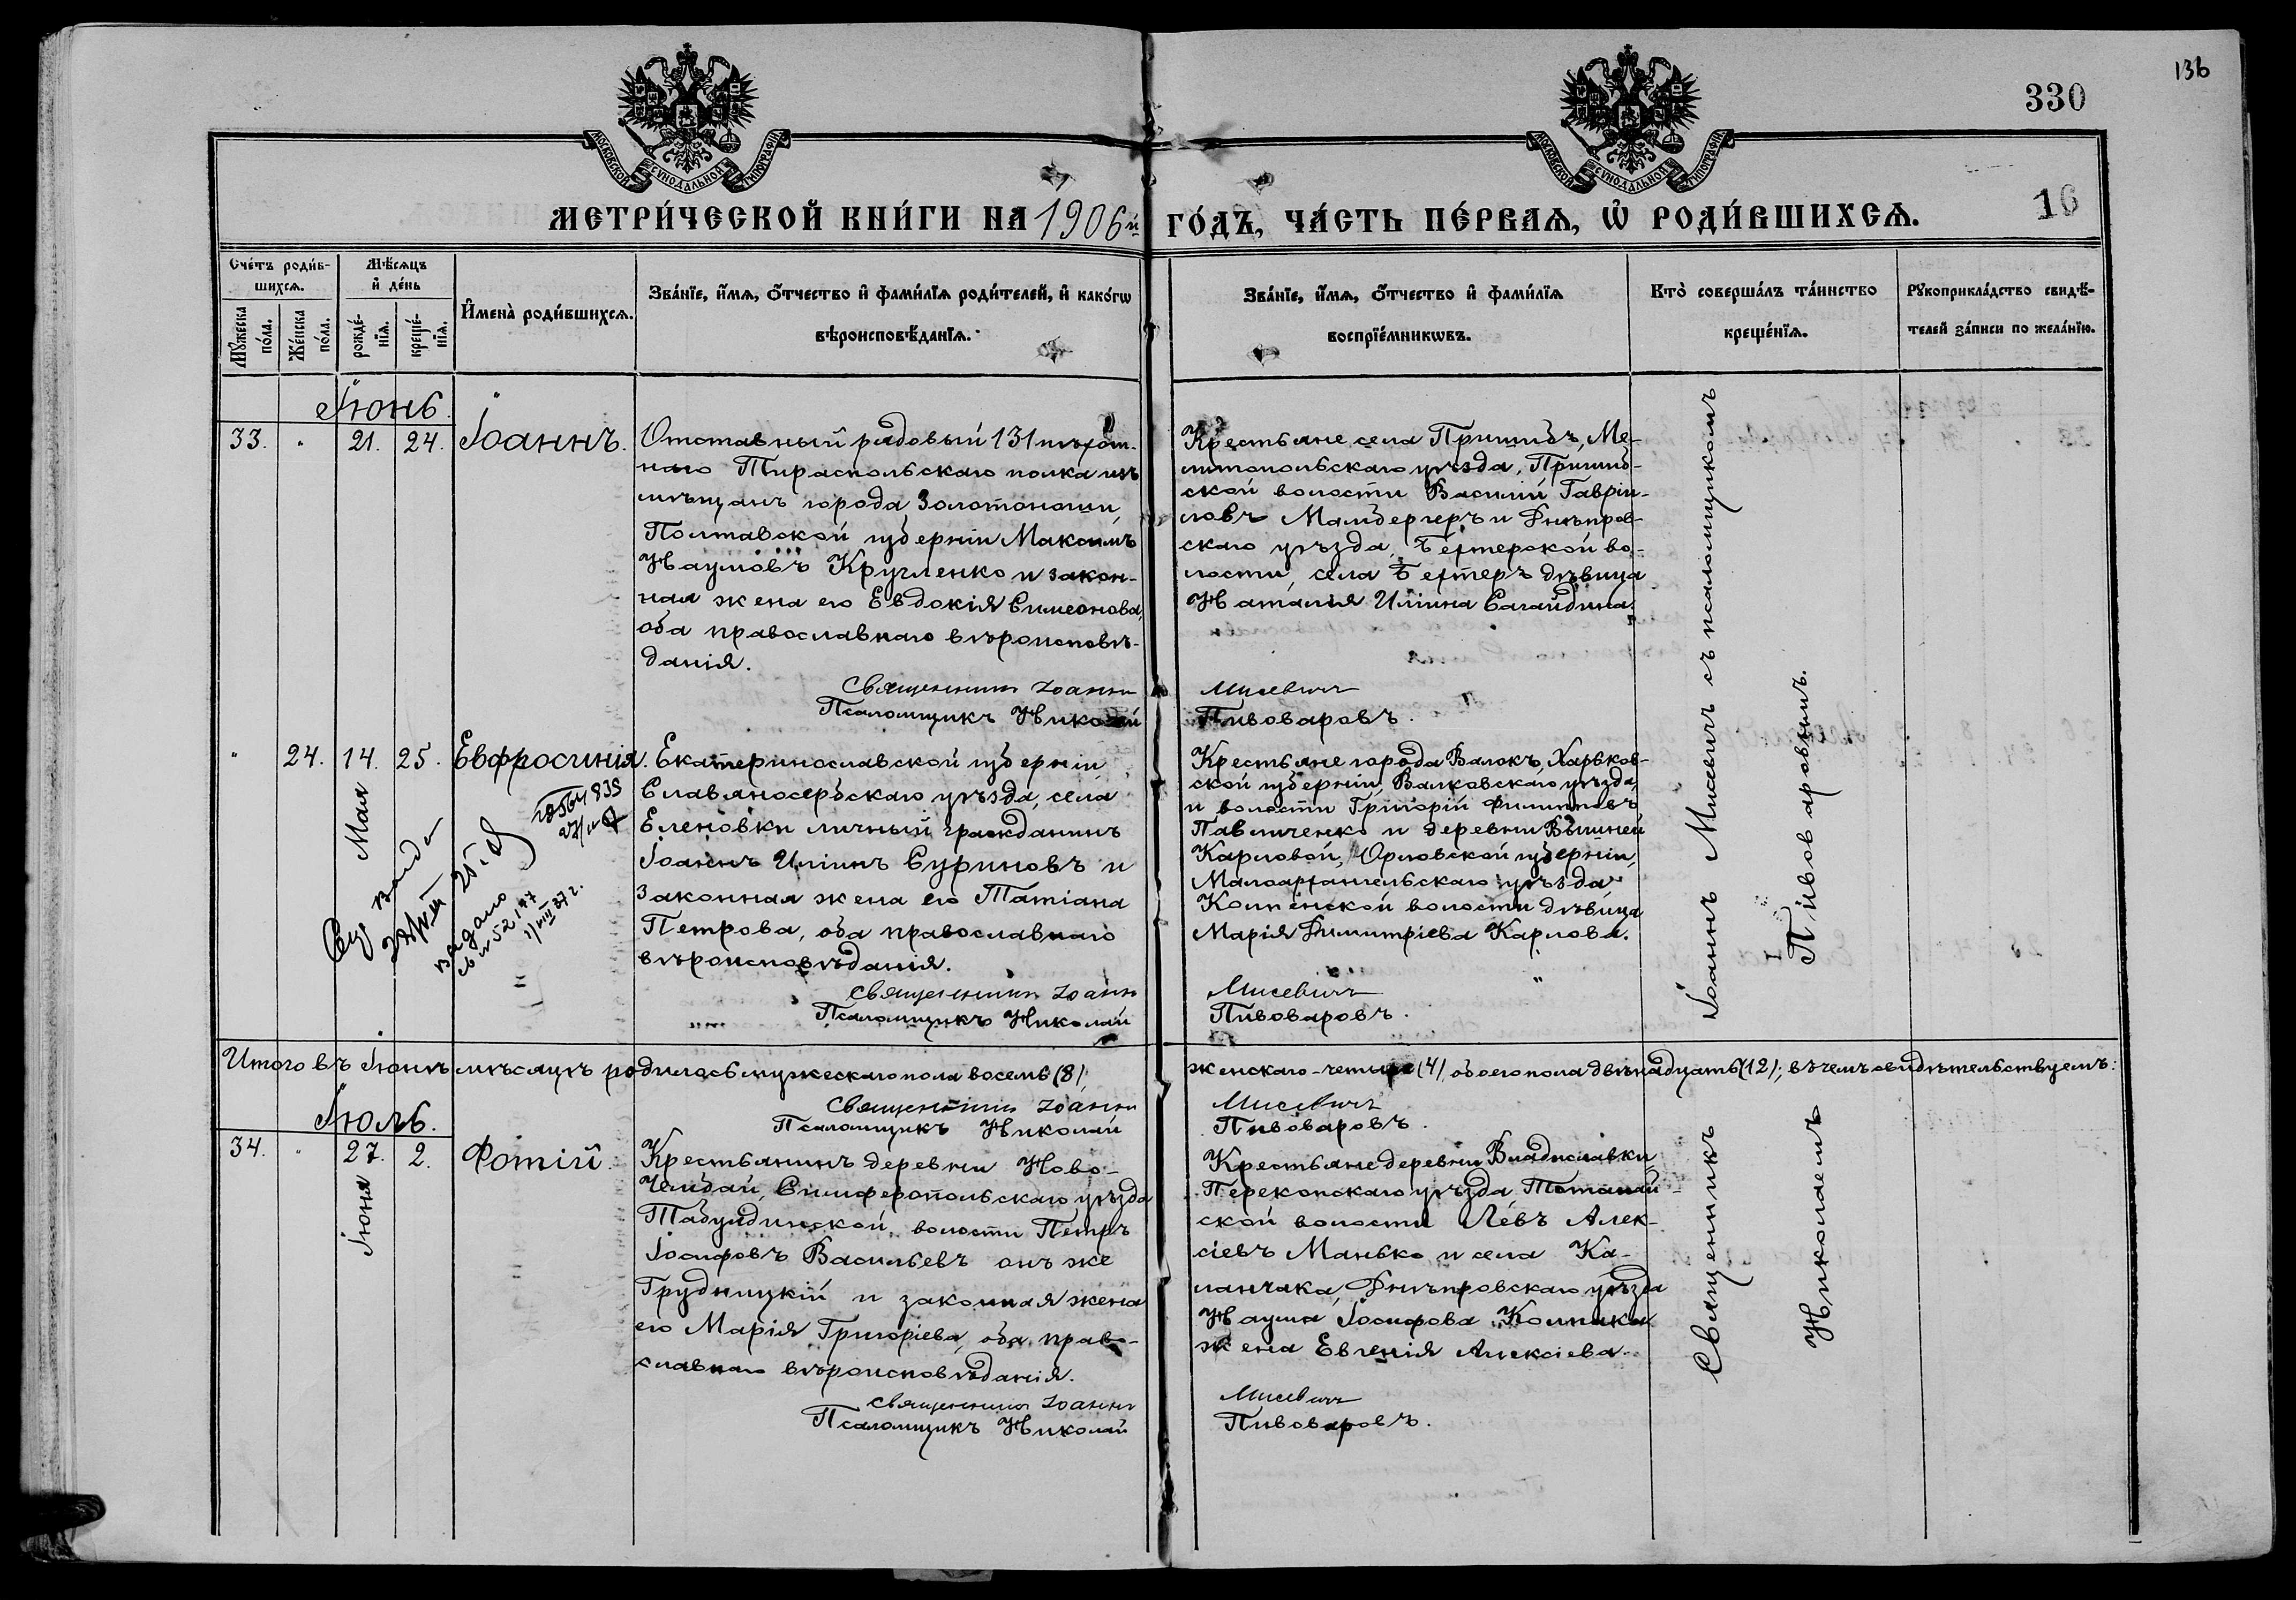 136
330
16
МОСКОВСКОЙ СѴНОДАЛЬНОЙ ТИПОГРАФІИ
МОСКОВСКОЙ СѴНОДАЛЬНОЙ ТИПОГРАФІИ
МЕТРИ́ЧЕСКОЙ КНИ́ГИ НА 1906й ГО́ДЪ, ЧА́СТЬ ПЕ́РВАѦ, Ѡ РОДИ́ВШИХСѦ.
Сче́тъ роди́в-
шихсѧ.
Мѣ́сѧцъ
и де́нь
Мꙋ́жеска
по́ла.
Же́нска
по́ла.
рожде́-
нїѧ.
креще́-
нїѧ.
И҆мена̀ роди́вшихсѧ.
Зва́нїе, и҆́мѧ, ѻ҆́тчество и҆ фами́лїѧ роди́телей, и҆ како́гѡ
вѣроисповѣ́данїѧ.
Зва́нїе, и҆́мѧ, ѻ҆́тчество и҆ фами́лїѧ
воспрїе́мникѡвъ.
Кто̀ соверша́лъ та́инство
креще́нїѧ.
Рꙋкоприкла́дство свидѣ́-
телей за́писи по жела́нїю.
Іюнь.
33. " 21. 24. Іоаннъ.
Отставный рядовый 131 пѣхот-
наго Тираспольскаго полка изъ
мѣщанъ города Золотоноши,
Полтавской губерніи Максимъ
Наумовъ Кругленко и закон-
ная жена его Евдокія Симеонова,
оба православнаго вѣроисповѣ-
данія.
Священникъ Іоаннъ
Псаломщикъ Николай
Крестьяне села Пришибъ, Ме-
литопольскаго уѣзда, Пришиб-
ской волости Василій Гаврии-
ловъ и Днѣпров-
скаго уѣзда, Бехтерской во-
лости, села Бехтеръ дѣвица
Наталія Иліина
Мисевичъ
Пивоваровъ.
" 24. 14. 25. Евфросинія.
Мая
выдано
Екатеринославской губерніи,
Славяносербскаго уѣзда, села
Еленовки личный гражданинъ
Іоаннъ Иліинъ Суриновъ и
законная жена его Татіана
Петрова, оба православнаго
вѣроисповѣданія.
Священникъ Іоаннъ
Псаломщикъ Николай
Крестьяне города Валокъ, Харьков-
ской губерніи, Валковскаго уѣзда,
и волости Григорій Филипповъ
Павличенко и деревни
Карловой, Орловской губерніи,
Малоархангельскаго уѣзда,
волости дѣвица
Марія Димитріева Карлова.
Мисевичъ
Пивоваровъ.
Іоаннъ Мисевичъ съ псаломщикомъ
Пивоваровымъ.
Итого въ Іюнѣ мѣсяцѣ родилось мужескаго пола восемь (8),
женскаго - четыре (4), обоего пола двѣнадцать (12); въ чемъ свидѣтельствуемъ:
Священникъ Іоаннъ
Псаломщикъ Николай
Мисевичъ
Пивоваровъ.
Іюль.
34. " 27. 2. Фотій.
Іюня
Крестьянинъ деревни Ново-
Чембай, Симферопольскаго уѣзда
Табулдинской волости Петръ
Іосифовъ Васильевъ онъ же
Грудницкій и законная жена
его Марія Григоріева, оба право-
славнаго вѣроисповѣданія.
Священникъ Іоаннъ
Псаломщикъ Николай
Крестьяне деревни Владиславки,
Перекопскаго уѣзда,
ской волости Левъ Алек-
сіевъ Манько и села Ка-
ланчака, Днѣпровскаго уѣзда
Наума Іосифова
жена Евгенія Алексіева.
Мисевичъ
Пивоваровъ.
Священникъ
Николаемъ